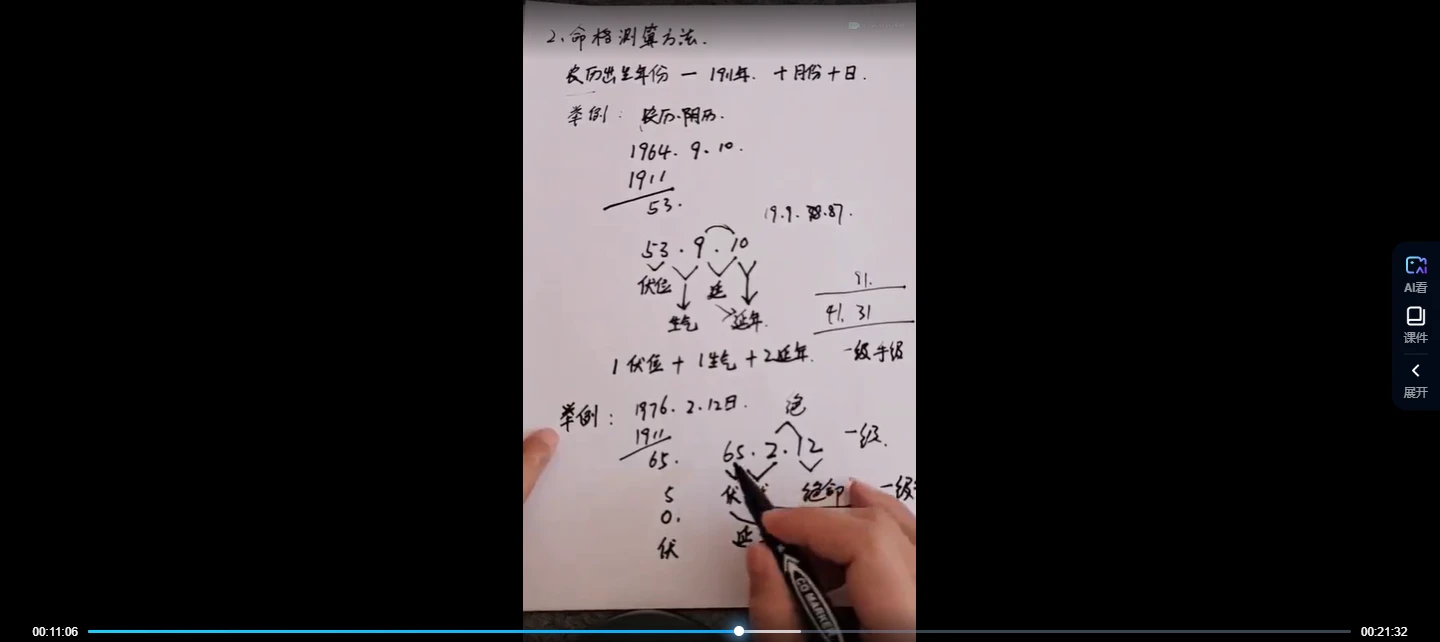 2、命格测算方法.
农历出生年份 — 1911年. 十月份十日.
举例: 农历.阴历.
1964. 9. 10.
1911
53.
19.9. .87.
53. 9. 10
伏位 延
生气 延年.
91.
41. 31
1伏位 + 1生气 + 2延年. 一级半级
举例: 1976. 2. 12日.
绝
1911
65. 2. 12 一级.
65.
5 伏 绝命 一级
0. 延
伏
CD MARKER
AI看
课件
展开
00:11:06
00:21:32